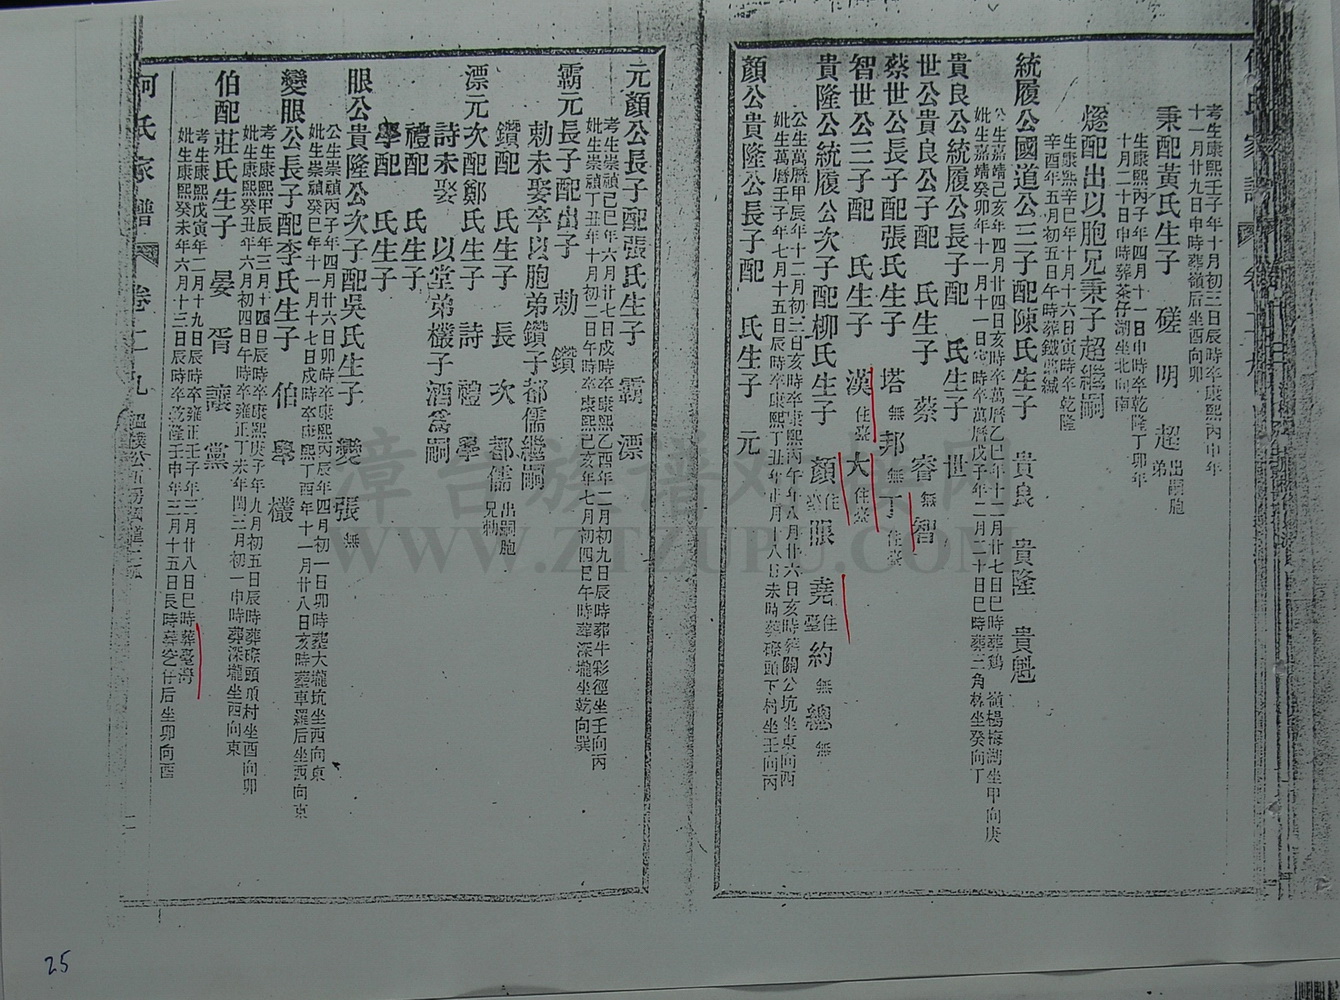 考生康熙壬子年十月初三日辰時卒康熙丙申年
十一月廿九日申時葬嶺后坐酉向卯
秉配黃氏生子 磋 明 超 出嗣胞弟
生康熙丙子年四月十一日申時卒乾隆丁卯年
十月二十日申時葬茶仔湖坐北向南
燧配出以胞兄秉子超繼嗣
生康熙辛巳年十月十六日寅時卒乾隆
辛酉年五月初五日午時葬鐵
統履公國道公三子配陳氏生子 貴良 貴隆 貴魁
公生嘉靖己亥年四月廿四日亥時卒萬曆乙巳年十二月廿七日巳時葬鷄嶺楊梅湖坐甲向庚
妣生嘉靖癸卯年十一月十一日 時卒萬曆戊子年二月二十日巳時葬二角林坐癸向丁
貴良公統履公長子配 氏生子 世
世公貴良公子配 氏生子 蔡 睿無 智
蔡世公長子配張氏生子 塔無 邦無 丁住臺
智世公三子配 氏生子 漢住臺 大住臺
貴隆公統履公次子配柳氏生子 顏住臺 眼 堯住臺 約無 總無
公生萬曆甲辰年十二月初三日亥時卒康熙丙午年八月廿六日亥時葬關公坑坐東向西
妣生萬曆壬子年七月十五日辰時卒康熙丁丑年正月十八日未時葬 頭下村坐壬向丙
顏公貴隆公長子配 氏生子 元
元顏公長子配張氏生子 霸 漂
考生崇禎己巳年六月廿七日戌時卒康熙乙酉年二月初九日辰時葬牛彩徑坐壬向丙
妣生崇禎丁丑年十月初二日午時卒康熙己亥年七月初四日午時葬深壠坐乾向巽
霸元長子配出子 勅 鑽
勅未娶卒以胞弟鑽子都儒繼嗣
鑽配 氏生子 長 次 都儒 出嗣胞兄勅
漂元次配鄭氏生子 詩 禮 學
詩未娶 以堂弟欉子酒為嗣
禮配 氏生子
學配 氏生子
眼公貴隆公次子配吳氏生子 變 張無
公生崇禎丙子年四月廿六日卯時卒康熙丙辰年四月初一日卯時葬大壠坑坐西向東
妣生崇禎癸巳年十一月十七日戌時卒康熙丁酉年十一月廿八日亥時葬車羅后坐西向東
變眼公長子配李氏生子 伯 學 欉
考生康熙甲辰年三月十四日辰時卒康熙庚子年九月初五日辰時葬 頭項村坐酉向卯
妣生康熙癸丑年六月初四日午時卒雍正丁未年閏三月初一申時葬深壠坐西向東
伯配莊氏生子 晏 胥 讓 黨
考生康熙戊寅年二月十九日辰時卒雍正壬子年三月廿八日巳時葬臺灣
妣生康熙癸未年六月十三日辰時卒乾隆壬申年三月十五日長時葬 仔后坐卯向酉
何氏家譜 卷二九
漳台族谱对接网
WWW.ZTZUPU.COM
25